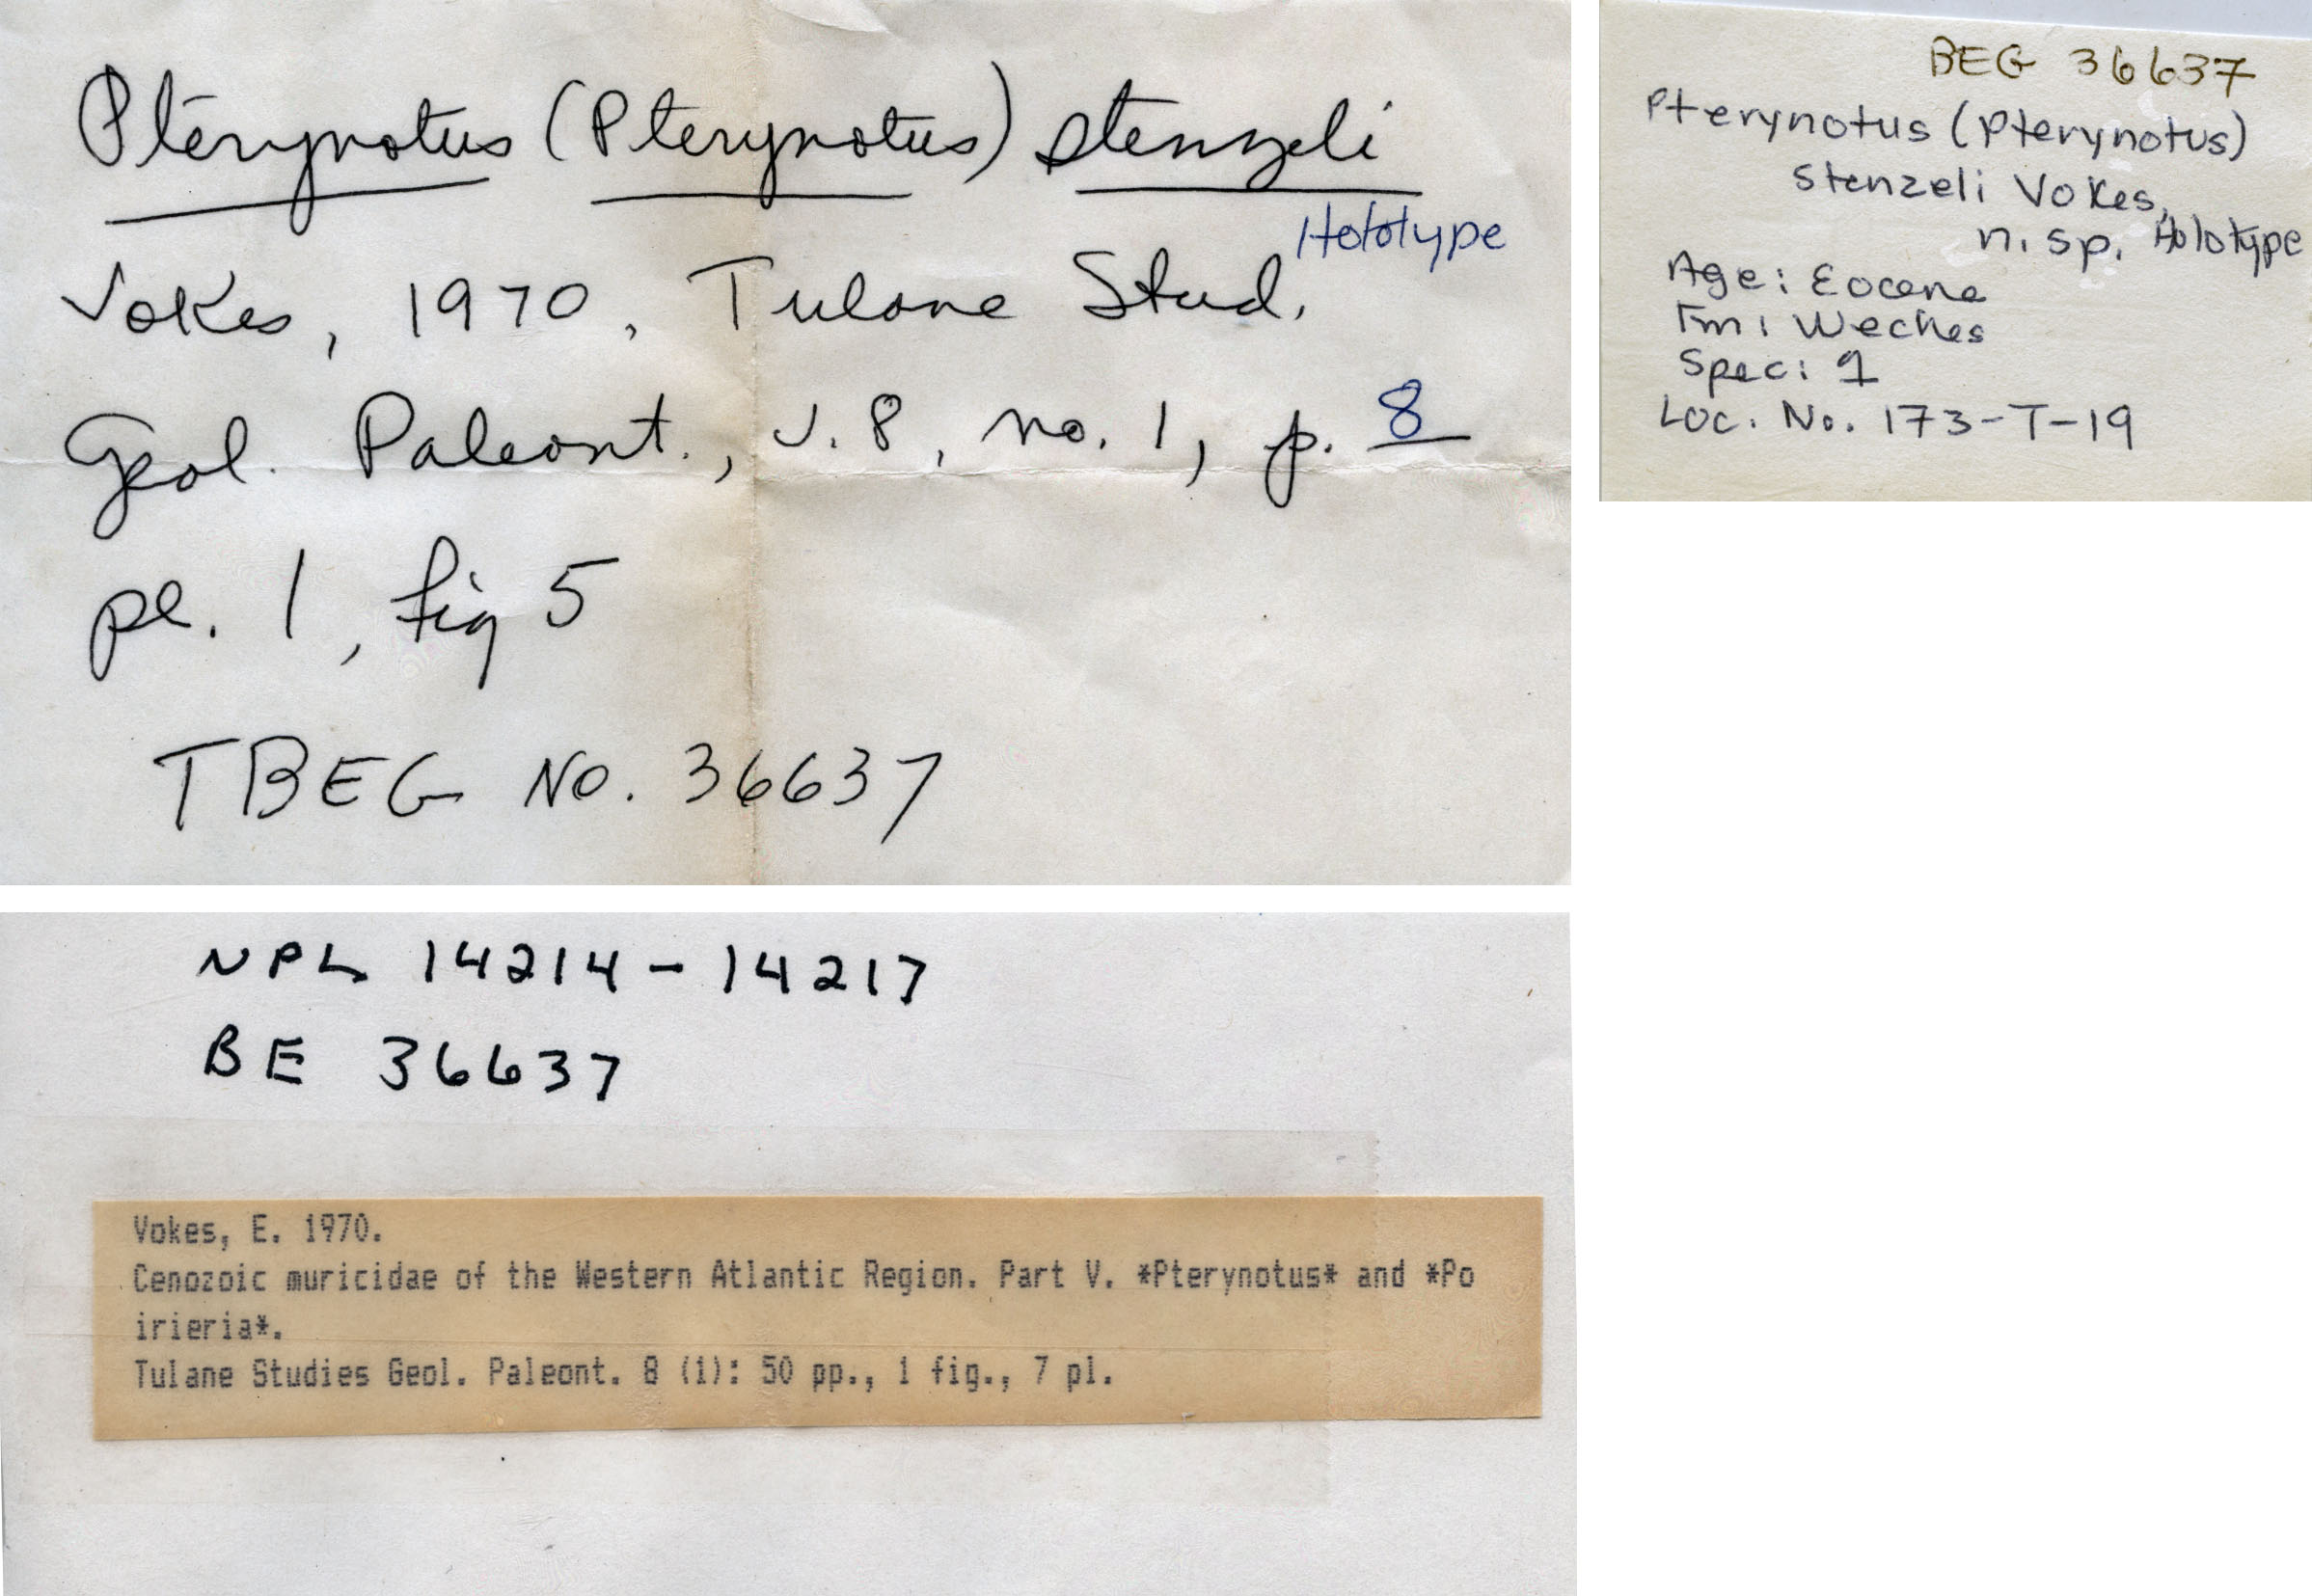 Pterynotus (Pterynotus) stenzeli
Holotype
Vokes, 1970, Tulane Stud.
Geol. Paleont., v. 8, no. 1, p. 8
pl. 1, fig 5
TBEG No. 36637
BEG 36637
Pterynotus (Pterynotus)
stenzeli Vokes,
n. sp. Holotype
Age: Eocene
Fm: Weches
Spec: 1
Loc. No. 173-T-19
NPL 14214-14217
BE 36637
Vokes, E. 1970.
Cenozoic muricidae of the Western Atlantic Region. Part V. *Pterynotus* and *Po
irieria*.
Tulane Studies Geol. Paleont. 8 (1): 50 pp., 1 fig., 7 pl.